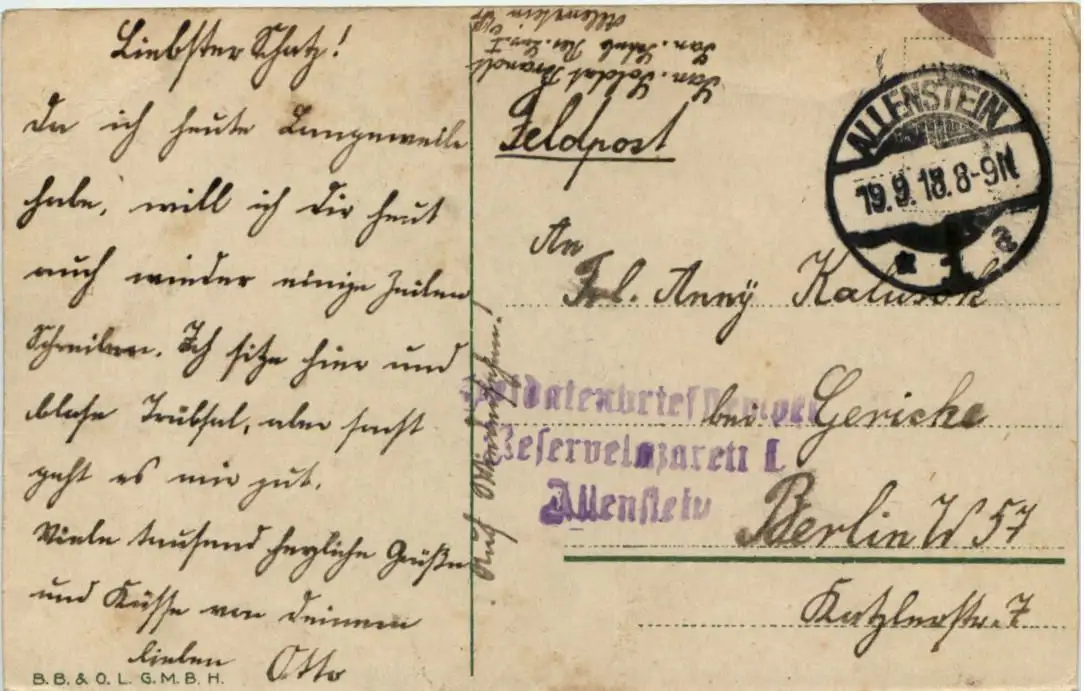 Liebster Schatz!
Da ich heute Langeweile
habe, will ich dir heut
auch wieder einige Zeilen
Schreiben. Ich sitze hier und
blase Trübsal, aber sonst
geht es mir gut.
Viele tausend herzliche Grüße
und Küsse von deinem
lieben Otto
Auf Wiedersehen!
B.B. & O. L. G.M.B.H.
San. Soldat Brandt
San. Res. Laz. I
Allenstein
Feldpost
ALLENSTEIN
19.9.18.8-9N
* 1 a
An
Frl. Anny Kalusok
bei Gericke
Berlin W 57
Katzlerstr. 7
Soldatenbriefstempel
Reservelazarett I
Allenstein